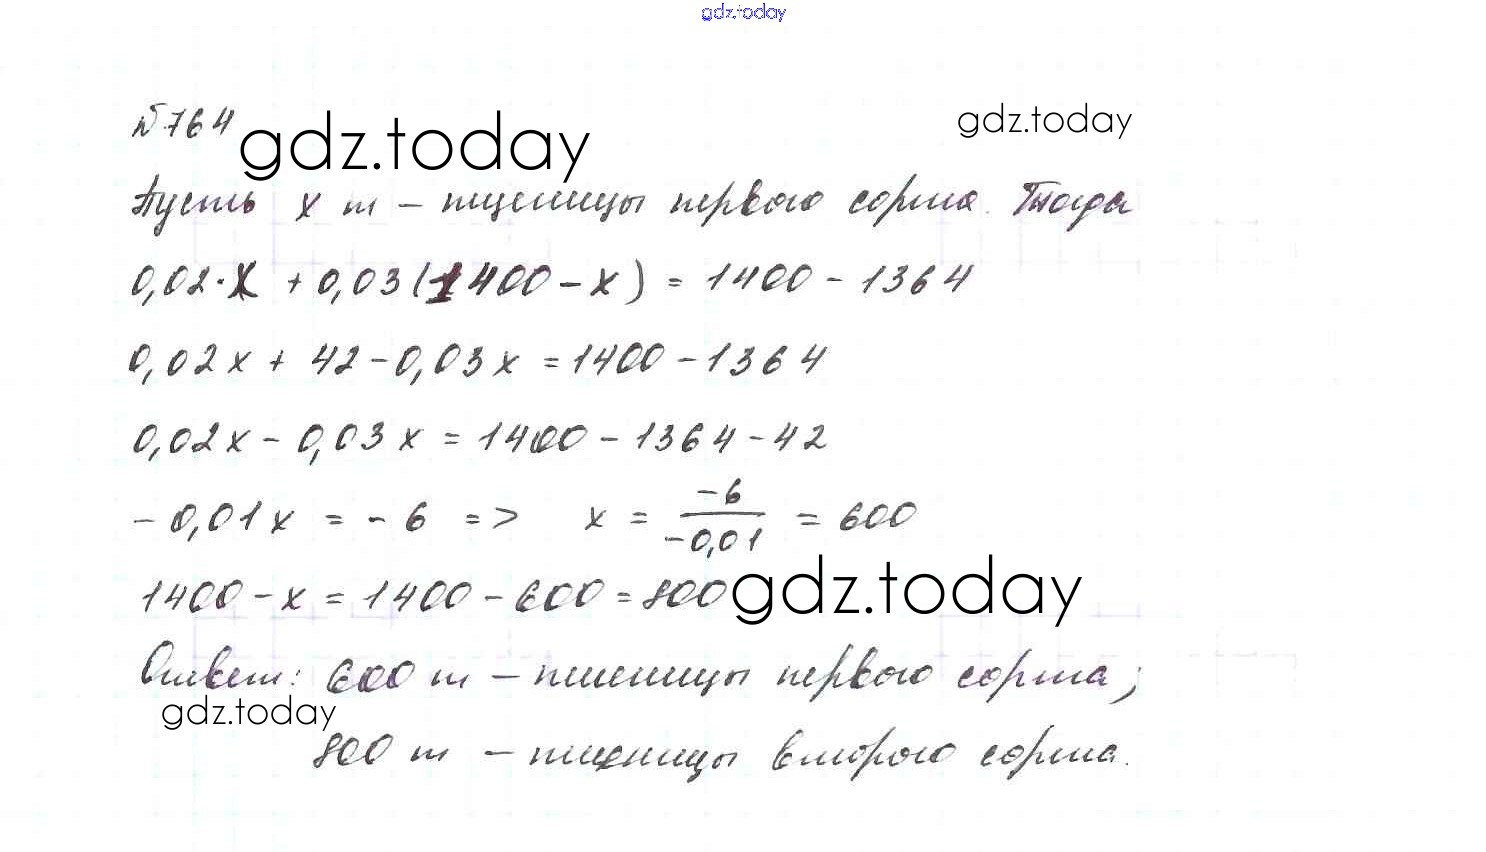 gdz.today
№764
gdz.today
gdz.today
Пусть x т – пшеницы первого сорта. Тогда
0,02·x + 0,03(1400 – x) = 1400 – 1364
0,02x + 42 – 0,03x = 1400 – 1364
0,02x – 0,03x = 1400 – 1364 – 42
– 0,01x = – 6 => x = –6/–0,01 = 600
1400 – x = 1400 – 600 = 800
gdz.today
Ответ: 600 т – пшеницы первого сорта;
gdz.today
800 т – пшеницы второго сорта.